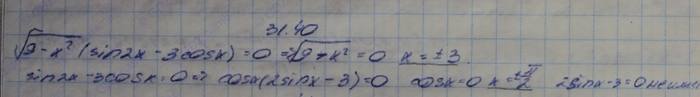 31.40
√9-x² (sin2x - 3cosx) = 0 ⇒ √9-x² = 0 x = ± 3.
sin2x - 3cosx = 0 ⇒ cosx(2sinx - 3) = 0 cosx = 0 x = ±π/2 2sinx - 3 = 0